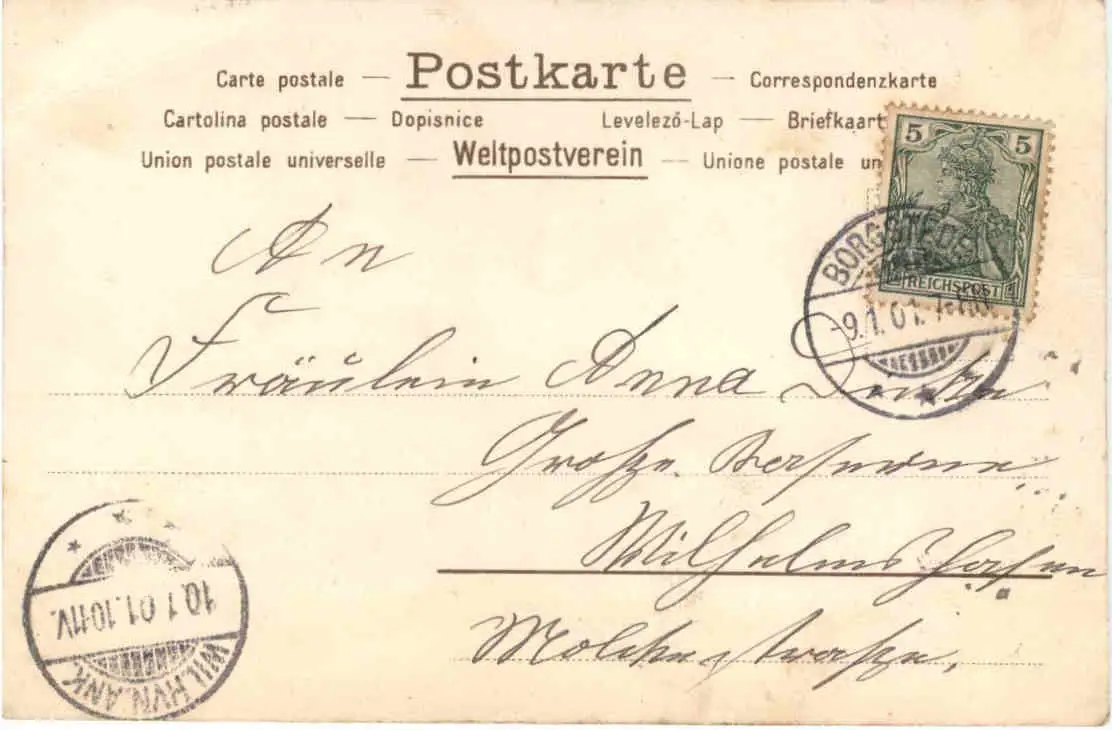 Carte postale — Postkarte — Correspondenzkarte
Cartolina postale — Dopisnice Levelező-Lap — Briefkaart
Union postale universelle — Weltpostverein — Unione postale un
5 5
REICHSPOST
BORGSTEDE
-9.1.01.7-8N
An
Fräulein Anna
Große
Wilhelmshafen
Molckestraße.
10.1.01.10-11V.
WILHVN. ANK.